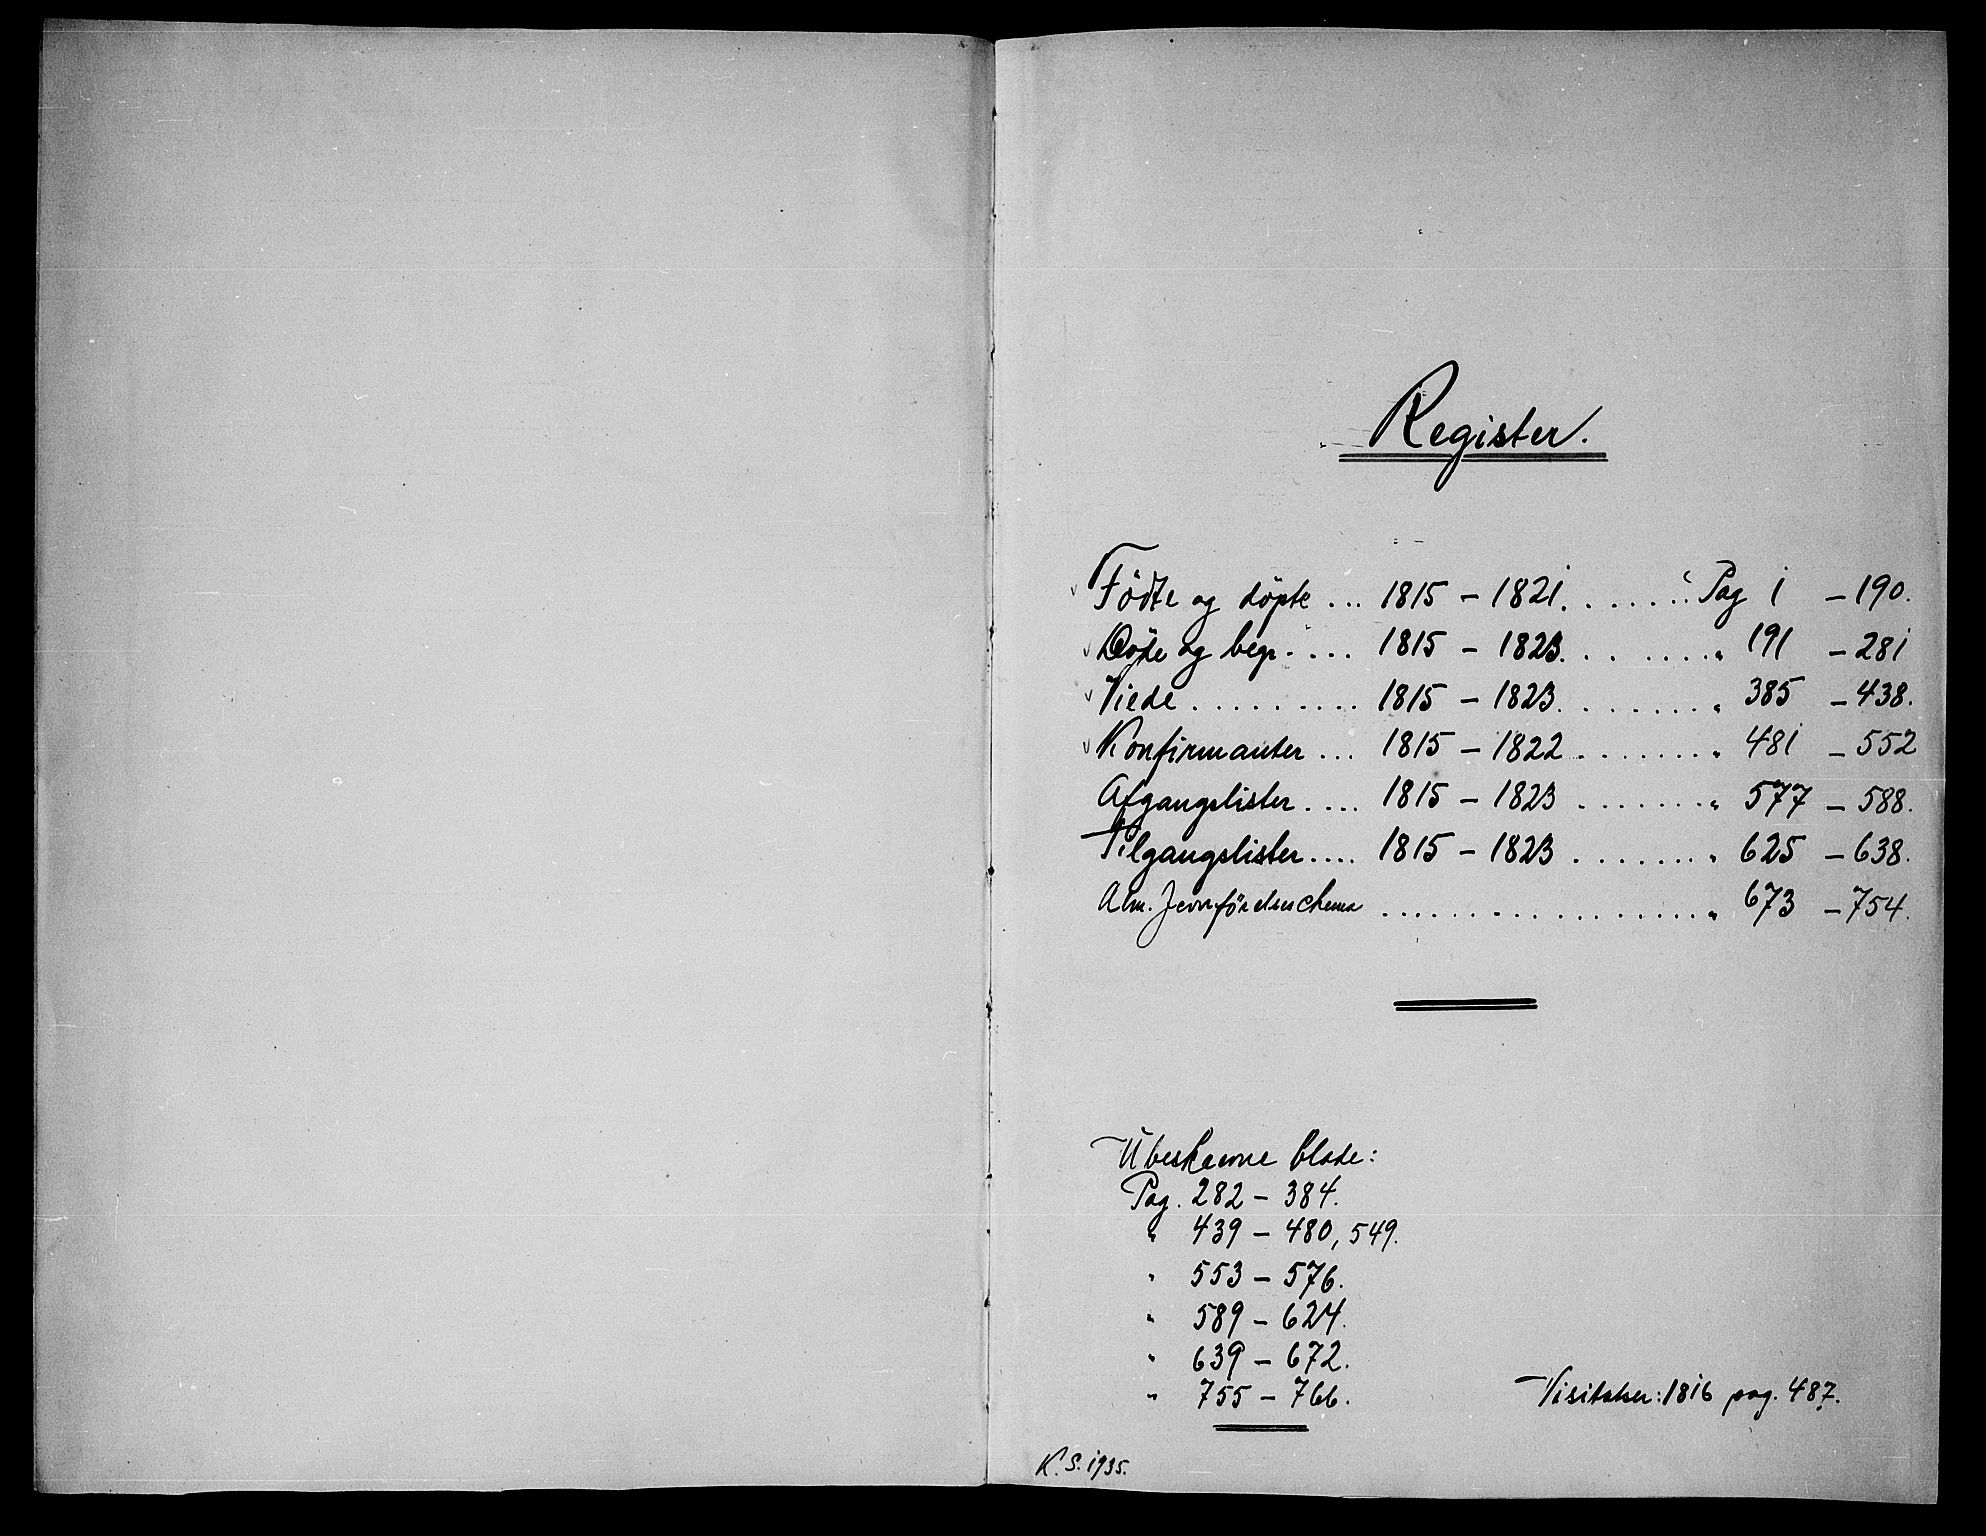 Register.
Födte og döpte ... 1815 – 1821. . . . . . . Pag 1 – 190.
Döde og begr. . . . . 1815 – 1823. . . . . . . " 191 – 281
Viede . . . . . . . . . . 1815 – 1823. . . . . . . . " 385 – 438.
Konfirmanter ... 1815 – 1822 . . . . . . . . " 481 – 552
Afgangslister .... 1815 – 1823 . . . . . . . . " 577 – 588.
Tilgangslister .... 1815 – 1823 . . . . . . . . " 625 – 638.
Alm. Jevnförelseschema . . . . . . . . . . . . . . . . . . . " 673 – 754.
Ubeskrevne blade:
Pag. 282 – 384.
" 439 – 480, 549.
" 553 – 576.
" 589 – 624.
" 639 – 672.
" 755 – 766.
Visitatser: 1816 pag. 487.
K. S. 1935.